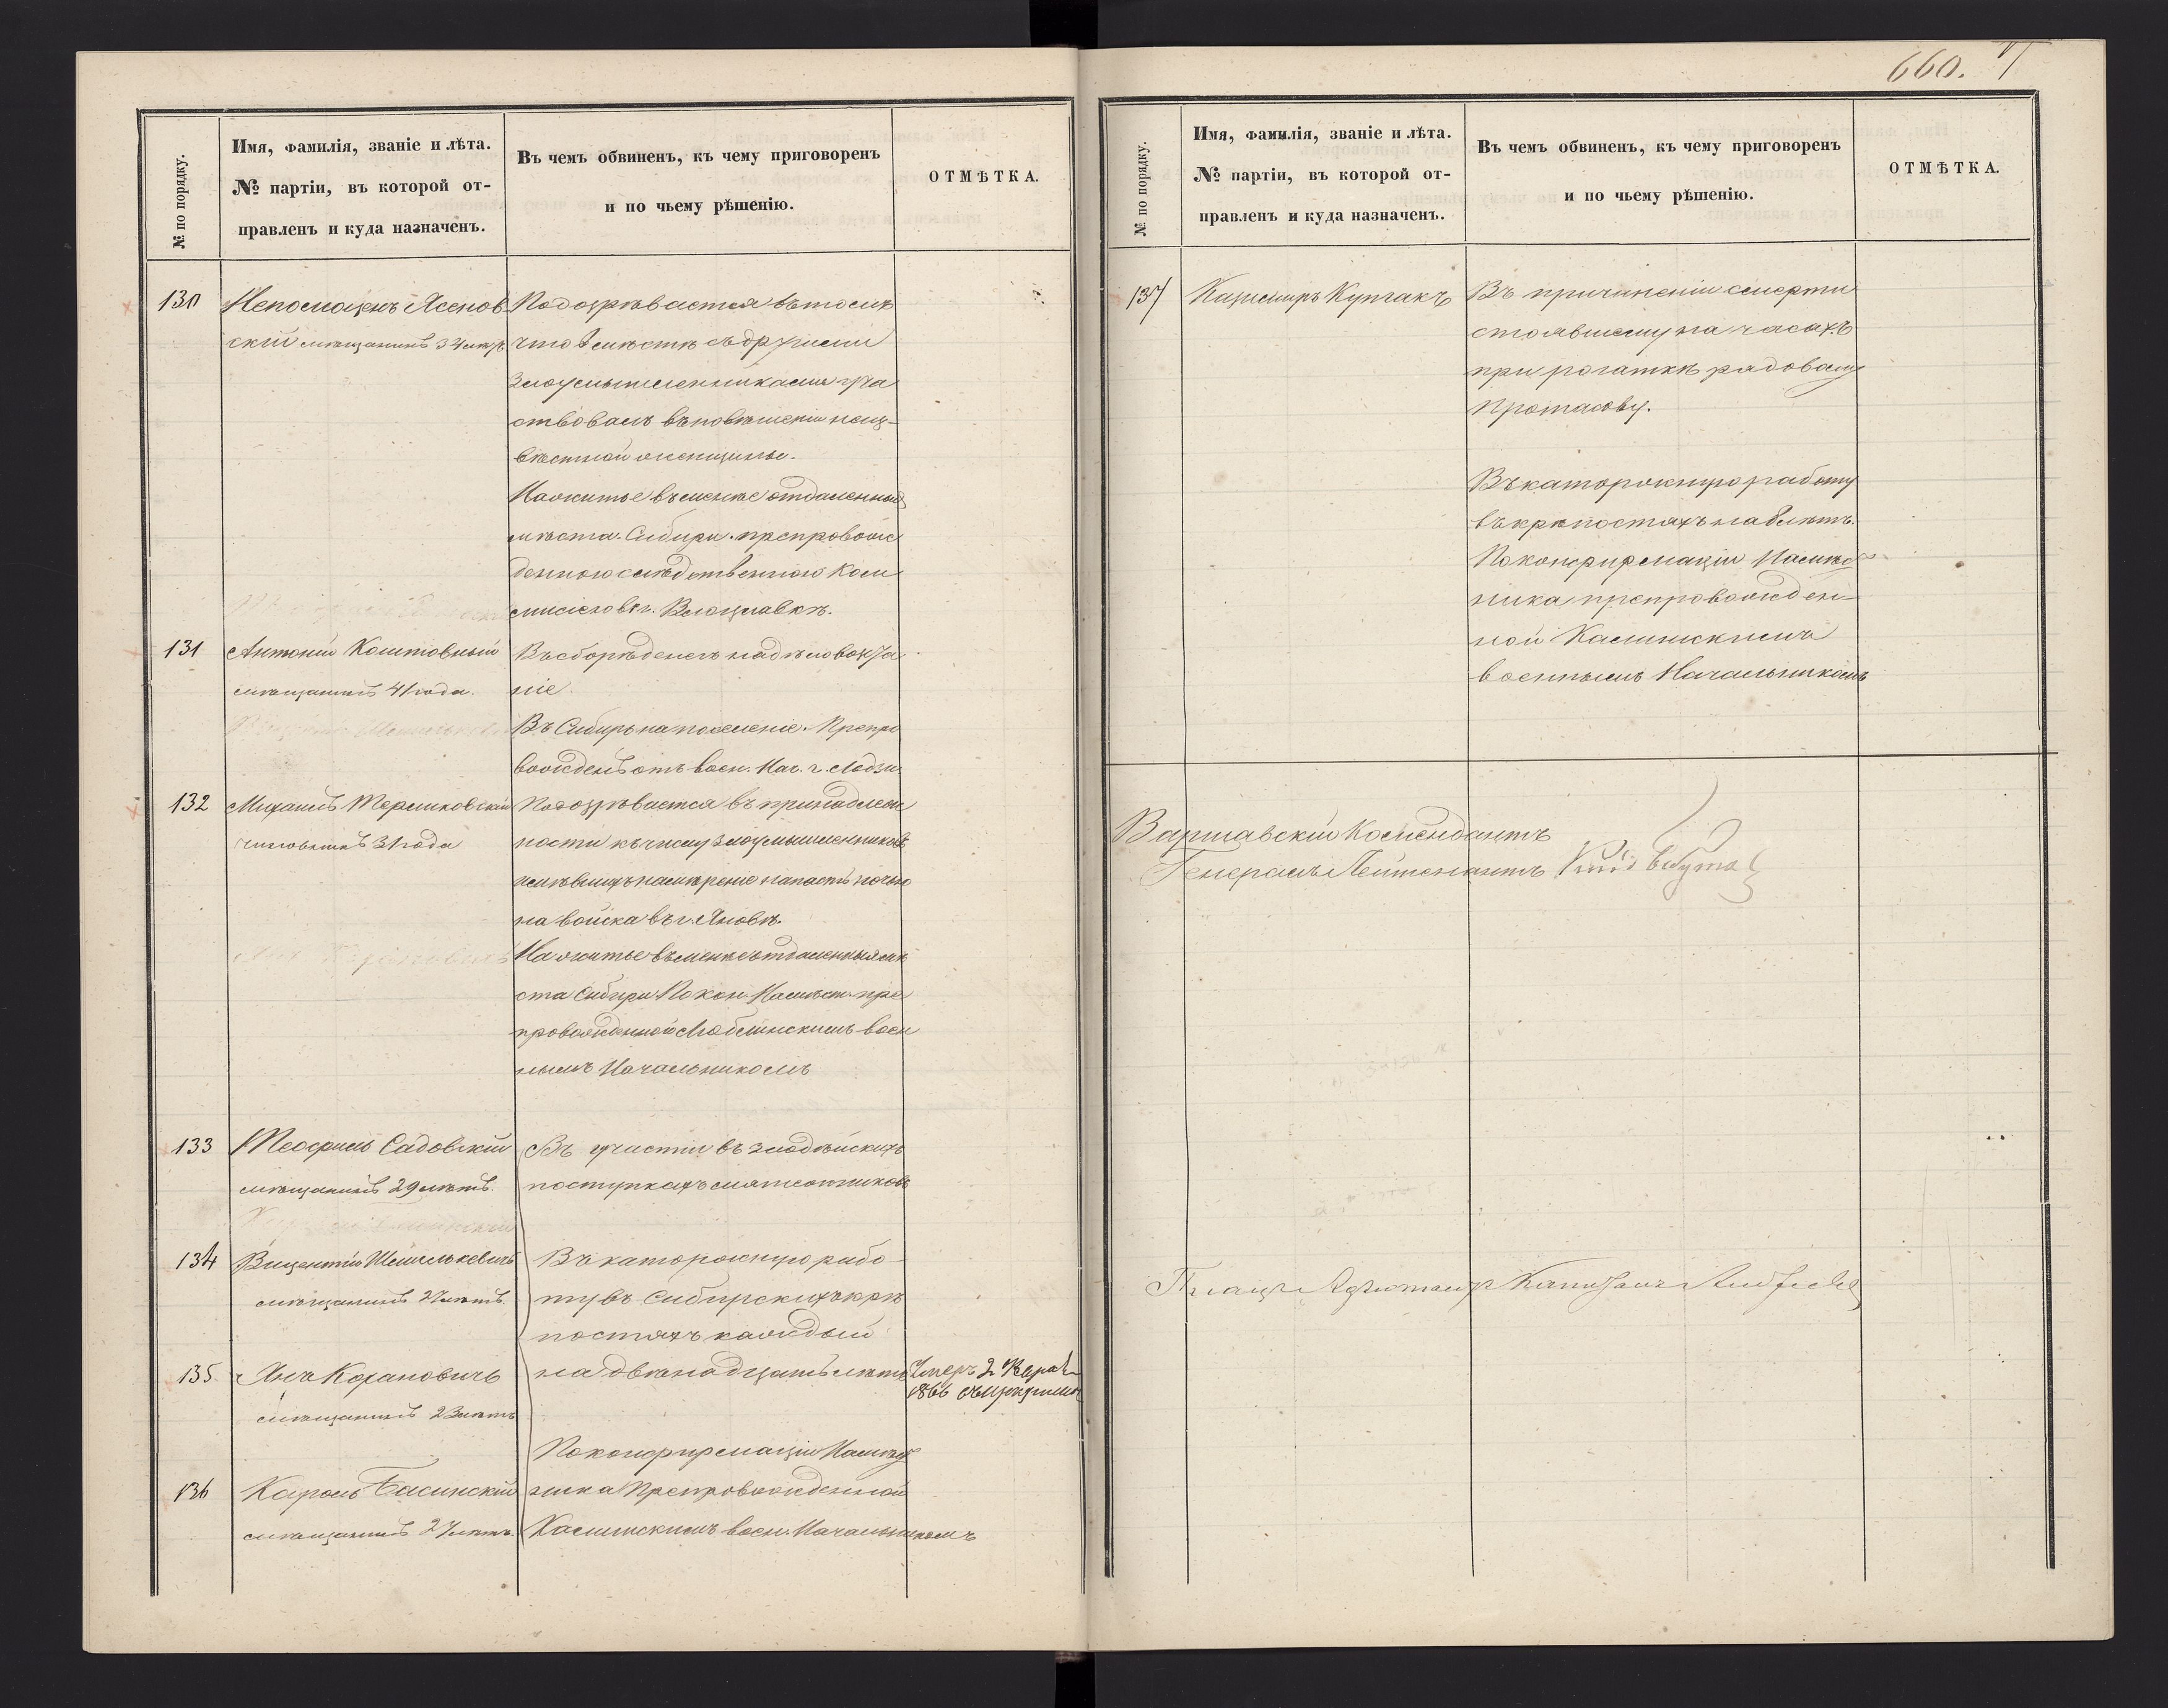 № по порядку.
Имя, фамилія, званіе и лѣта.
№ партіи, въ которой от-
правленъ и куда назначенъ.
Въ чемъ обвиненъ, къ чему приговоренъ
и по чьему рѣшенію.
ОТМѢТКА.
130
Непомуценъ Ясенов-
скій мѣщанинъ 34 лѣтъ
Подозрѣвается въ томъ
что вмѣстѣ съ другими
злоумышленниками уча
ствовалъ въ повѣшеніи неиз-
вѣстной женщины.
На житье въ менѣе отдаленныя
мѣста Сибири. препровож
денною слѣдственною Ком
мисіею въ г. Влоцлавкѣ.
131
Антоній Колитовный
мѣщанинъ 41 года.
Въ сборѣ денегъ на
ніе
Въ Сибирь на поселеніе. Препро
вожденъ отъ воен. Нач. г. Лодзи.
132
Михаилъ Термиковскій
чиновникъ 31 года
Подозрѣвается въ принадлеж
ности къ числу злоумышленниковъ
имѣвшихъ намѣреніе напасть ночью
на войска въ г. Яновѣ.
На житье въ менѣе отдаленныя мѣ
ста Сибири По кон. Намѣст. пре
провожденной Люблинскимъ воен
нымъ Начальникомъ
133
Теофилъ Садовскій
мѣщанинъ 29 лѣтъ.
Въ участіи въ злодѣйскихъ
поступкахъ мятежниковъ
134
Викентій Шемелькевичъ
мѣщанинъ 27 лѣтъ.
Въ каторжную рабо-
ту въ Сибирскихъ крѣ
постяхъ каждый
135
Янъ Кохановичъ
мѣщанинъ 23 лѣтъ
на двѣнадцать лѣтъ
Умеръ 2 Февраля
1866
По конфирмаціи Намѣст
136
Кароль Басинскій
мѣщанинъ 27 лѣтъ.
ника Препровожденной
Калишскимъ воен. Начальникомъ
660.
№ по порядку.
Имя, фамилія, званіе и лѣта.
№ партіи, въ которой от-
правленъ и куда назначенъ.
Въ чемъ обвиненъ, къ чему приговоренъ
и по чьему рѣшенію.
ОТМѢТКА.
137
Казимиръ Купчакъ
Въ причиненіи смерти
стоявшему на часахъ
при рогаткѣ рядовому
Протасову.
Въ каторжную работу
въ крѣпостяхъ на 8 лѣтъ.
По конфирмаціи Намѣст
ника препровожден-
ной Калишскимъ
военнымъ Начальникомъ
Варшавскій Комендантъ
Генералъ Лейтенантъ
Плацъ Адъютантъ Капитанъ